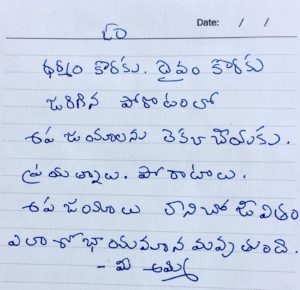 Date: / /
ఓం
ధర్మం కొరకు. దైవం కొరకు
జరిగిన పోరాటంలో
అప జయాలను లెక్క చేయకు.
ప్రయత్నాలు. పోరాటాలు.
అప జయాలు రానిచో జీవితం
ఎలా శోభాయమాన మవు తుంది.
- మీ అమ్మ